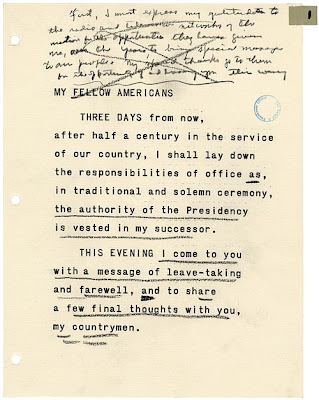 1
First, I must express my gratitude to
the radio and television networks of the
nation for the opportunities they have given
me, over the years to bring special messages
to our people. My special thanks go to them
for the opportunity of addressing you this evening
MY FELLOW AMERICANS
THREE DAYS from now,
after half a century in the service
of our country, I shall lay down
the responsibilities of office as,
in traditional and solemn ceremony,
the authority of the Presidency
is vested in my successor.
THIS EVENING I come to you
with a message of leave-taking
and farewell, and to share
a few final thoughts with you,
my countrymen.